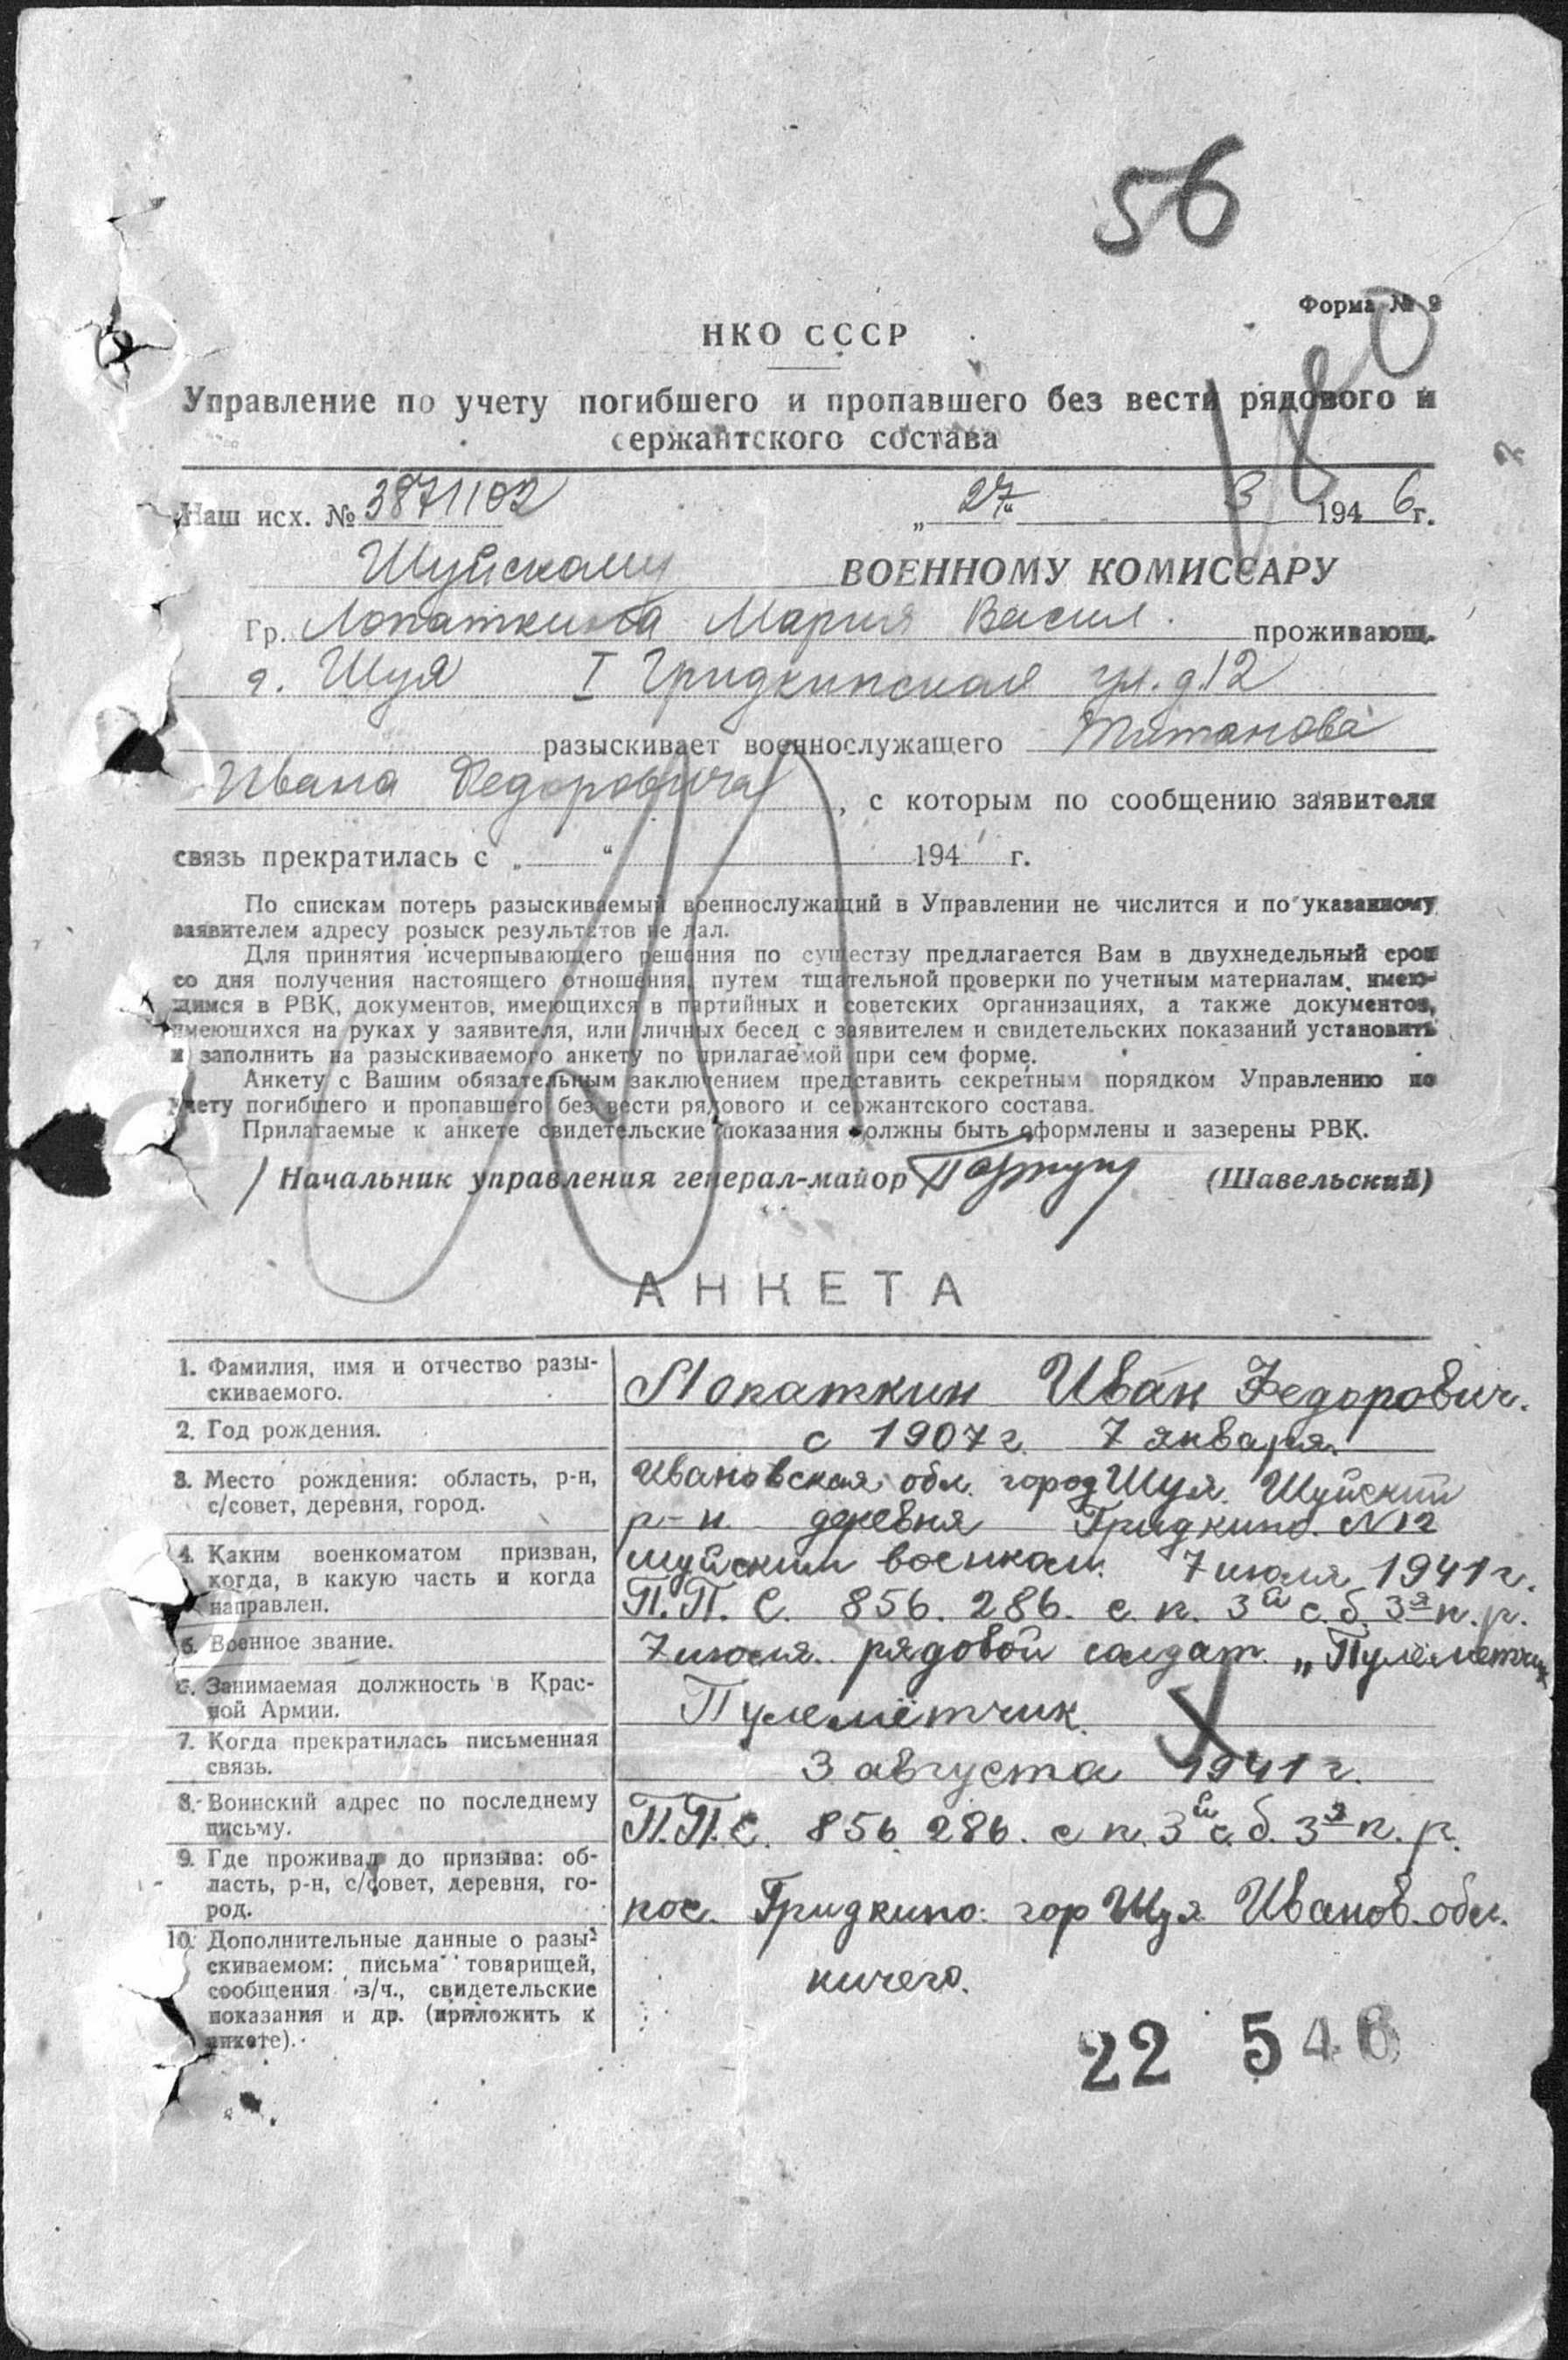 56
Форма № 9
180
НКО СССР
Управление по учету погибшего и пропавшего без вести рядового и
сержантского состава
Наш исх. № 3871102 „27“ 3 1946г.
Шуйскому ВОЕННОМУ КОМИССАРУ
Гр. Лопаткина Мария Васил. проживающ.
г. Шуя I Гридкинская ул. д.12
разыскивает военнослужащего
Ивана Федоровича, с которым по сообщению заявителя
связь прекратилась с „ “ 194 г.
По спискам потерь разыскиваемый военнослужащий в Управлении не числится и по указанному
заявителем адресу розыск результатов не дал.
Для принятия исчерпывающего решения по существу предлагается Вам в двухнедельный срок
со дня получения настоящего отношения, путем тщательной проверки по учетным материалам, имею-
щимся в РВК, документов, имеющихся в партийных и советских организациях, а также документов,
имеющихся на руках у заявителя, или личных бесед с заявителем и свидетельских показаний установить
и заполнить на разыскиваемого анкету по прилагаемой при сем форме.
Анкету с Вашим обязательным заключением представить секретным порядком Управлению по
учету погибшего и пропавшего без вести рядового и сержантского состава.
Прилагаемые к анкете свидетельские показания должны быть оформлены и заверены РВК.
Начальник управления генерал-майор (Шавельский)
АНКЕТА
1. Фамилия, имя и отчество разы-
скиваемого.
Лопаткин Иван Федорович.
2. Год рождения.
с 1907 г. 7 января.
3. Место рождения: область, р-н,
с/совет, деревня, город.
Ивановская обл. город Шуя. Шуйский
р-н деревня Гридкино. N 12
4. Каким военкоматом призван,
когда, в какую часть и когда
направлен.
Шуйским военком. 7 июля 1941 г.
П.П.С. 856. 286. с. п. 3й с.б. 3я п.р.
5. Военное звание.
7 июля. рядовой солдат. „Пулеметчик
6. Занимаемая должность в Крас-
ной Армии.
Пулемётчик.
7. Когда прекратилась письменная
связь.
3 августа 1941 г.
8. Воинский адрес по последнему
письму.
П.П.С. 856 286. с п. 3й с. б. 3я п. р.
9. Где проживал до призыва: об-
ласть, р-н, с/совет, деревня, го-
род.
пос. Гридкино. гор Шуя Иванов. обл.
10. Дополнительные данные о разы-
скиваемом: письма товарищей,
сообщения в/ч., свидетельские
показания и др. (приложить к
анкете).
ничего.
22 546